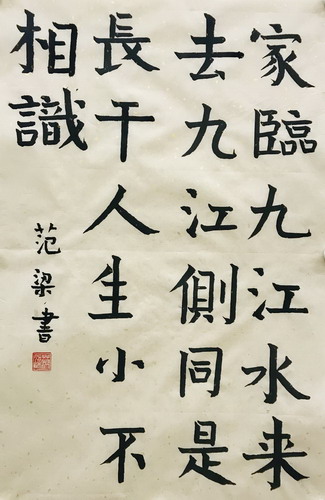 家臨九江水来
去九江側同是
長干人生小不
相識
范梁書